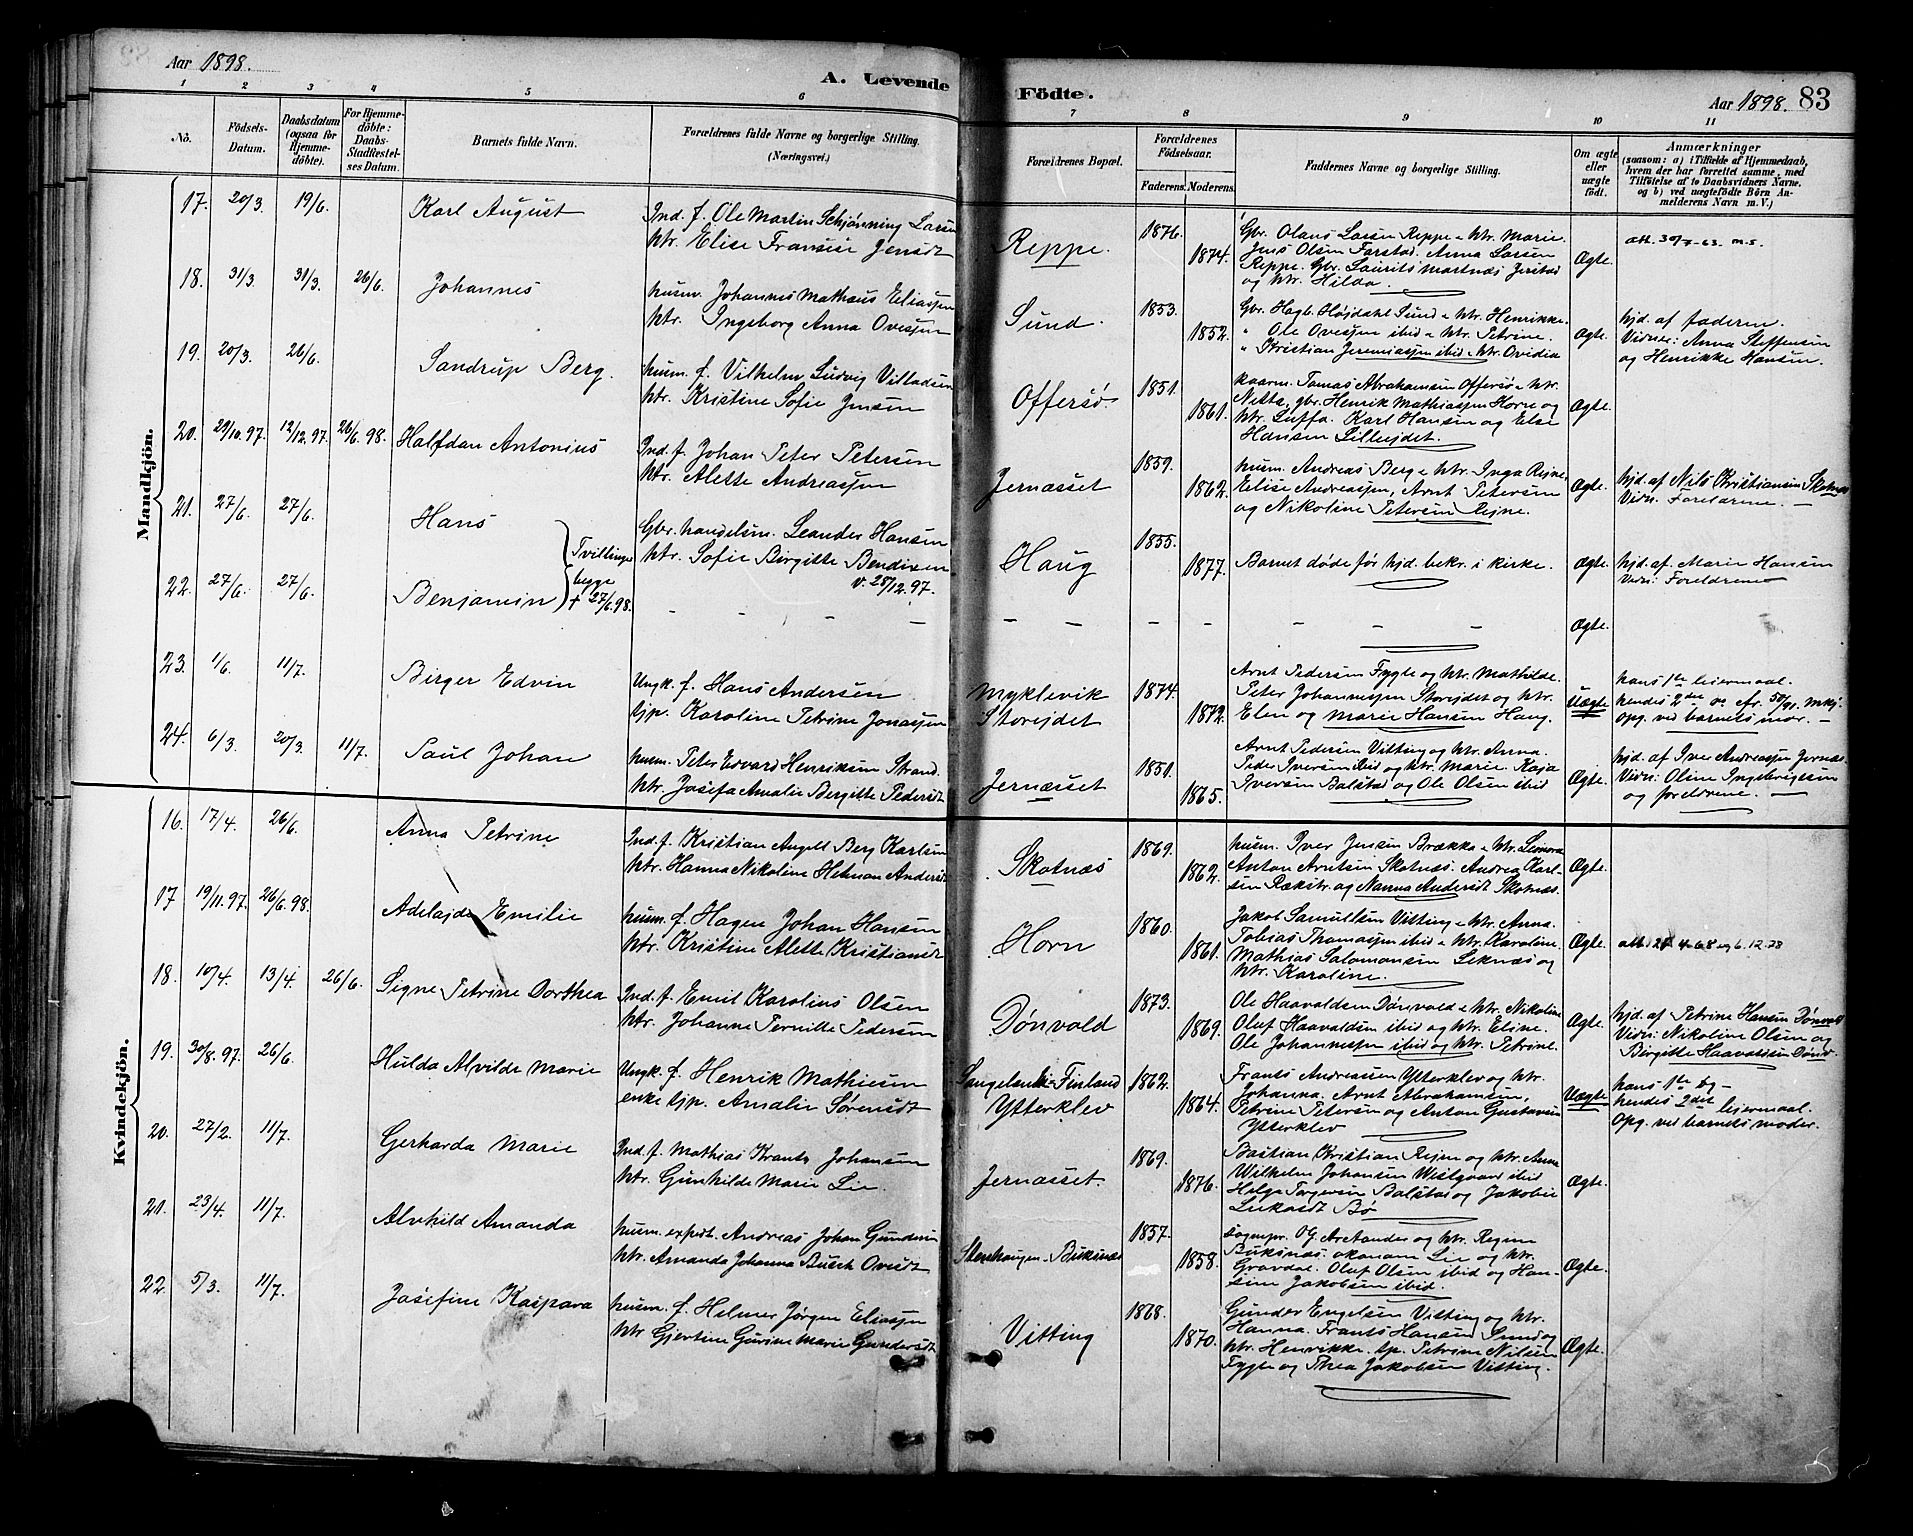 Aar 1898.
A. Levende Födte.
Aar 1898. 83
1 2 3 4 5 6 7 8 9 10 11
No.
Födsels-Datum.
Daabsdatum (ogsaa for Hjemmedöbte).
For Hjemmedöbte: Daabs-Stadfæstelses Datum.
Barnets fulde Navn.
Forældrenes fulde Navne og borgerlige Stilling.
(Næringsvei.)
Forældrenes Bopæl.
Forældrenes Födselsaar.
Faderens. Moderens.
Faddernes Navne og borgerlige Stilling.
Om ægte eller uægte födt.
Anmærkninger
(saasom: a) i Tilfælde af Hjemmedaab, hvem der har forrettet samme, med Tilföielse af to Daabsvidners Navne, og b) ved uægtefödte Börn Anmelderens Navn m. V.)
Mandkjön.
17. 20/3. 19/6. Karl August
Ind. f. Ole Martin Schjønning Larsen
htr. Elise Fransise Jensdt
Reppe. 1876. 1874.
Gbr. Olaus Larsen Reppe & htr. Marie.
Jens Olsen Farstad. Anna Larsen
Reppe. Gbr. Laurits Martnæs Jerstad
og htr. Hilda.
Ægte.
att. 30/7-63. m.s.
18. 31/3. 31/3. 26/6. Johannes
husm. Johannes Mathæus Eliassen
htr. Ingeborg Anna Ovesen
Sund. 1853. 1852.
Gbr. Hagb. Højdahl Sund & htr. Henrikke.
" Ole Ovesen ibid & htr. Petrine.
" Kristian Jeremiassen ibid & htr. Ovidia
Ægte.
hjd. af faderen.
Vidner: Anna Steffensen
og Henrikke Hansen.
19. 20/3. 26/6. Sandrup Berg.
husm. f. Vilhelm Ludvig Villadsen
htr. Kristine Sofie Jensen
Offersø. 1851. 1861.
kaarm. Tomas Abrahamsen Offersø & htr.
gbr. Henrik Mathiassen Horne og
htr. Luffa. Karl Hansen og Else
Hansen Lilleejdet.
Ægte.
20. 29/10.97. 12/12.97. 26/6.98. Halfdan Antonius
Ind. f. Johan Peter Petersen
htr. Alette Andreassen
Jernæsset 1859. 1862.
husm. Andreas Berg & htr. Inga Rejne,
Elise Andreassen, Arnt Petersen
og Nikoline Petersen Rejne.
Ægte.
hjd. af Nils Kristiansen Skotnæs
Vidn: Foreldrene. —
21. 27/6. 27/6. Hans
Gbr. handelsm. Leander Hansen
htr. Sofie Birgitte Bendixen
v. 28/12.97.
Haug 1855. 1877.
Barnet døde før hjd. bekr. i kirke.
Ægte.
hjd. af Marie Hansen
Vidn: Foreldrene
Tvillinge
begge
+ 27/6.98.
22. 27/6. 27/6. Benjamin
— — — — — — — — — Ægte.
23. 1/6. 11/7. Birger Edvin
Ungk. f. Hans Andersen
tjp. Karoline Petrine Jonassen
Myklevik
Storejdet
1874. 1872.
Arnt Pedersen Fygle og htr. Mathilde.
Peter Johannessen Storejdet og htr.
Elen og Marie Hansen Haug.
Uægte
hans 1ste leiermaal.
hendes 2det
opg. ved barnets mor. —
24. 6/3. 20/3. 11/7. Paul Johan
husm. Peter Edvard Henriksen Strand
htr. Josefa Amalie Bergitte Pedersdt
Jernæsset 1851. 1865.
Arnt Pedersen Vitting og htr. Anna.
Peder Iversen ibid og htr. Marie. Kaja
Iversen Balstad og Ole Olsen ibid
Ægte.
hjd. af Iver Andreassen Jernæs.
Vidn: Oline Ingebrigtsen
og foreldrene. —
Kvindekjön.
16. 17/4. 26/6. Anna Petrine
Ind. f. Kristian Angell Berg Karlsen
htr. Hanna Nikoline Helman Andersdt
Skotnæs 1869. 1862.
husm. Iver Jensen Brække & htr. Leonora
Anton Arntsen Skotnæs. Andrea Karl-
sen Rækstr. og Nanna Andersdt Skotnæs.
Ægte.
17 19/11.97. 26/6.98. Adelajde Emilie
husm. f. Hagen Johan Hansen
htr. Kristine Alette Kristiansdt
Horn 1860. 1861.
Jakob Samuelsen Vitting & htr. Anna.
Tobias Thomassen ibid & htr. Karoline.
Mathias Salomonsen Leknæs og
htr. Karoline.
Ægte.
att. 21 4-68 og 6.12.78
18. 10/4. 13/4. 26/6. Signe Petrine Dorthea
Ind. f. Emil Karolius Olsen
htr. Johanne Pernille Pedersen
Dønvold 1873. 1869.
Ole Haavaldsen Dønvold & htr. Nikoline
Oluf Haavaldsen ibid og htr. Eline.
Ole Johannessen ibid og htr. Petrine.
Ægte.
hjd. af Petrine Hansen Dønvold
Vidn: Nikoline Olsen og
Birgitte Haavaldsen Dønv.
19. 30/8.97. 26/6. Hulda Alvilde Marie
Ungk. f. Henrik Mathisen
enke tjp. Amalie Sørensdt
Sangeland i Finland
Ytterklev
1862. 1864.
Frants Andreassen Ytterklev og htr.
Johanna. Arnt Abrahamsen,
Petrine Petersen og Anton Gustavsen
Ytterklev
Uægte
hans 1ste og
hendes 2det leiermaal.
Opg. ved barnets moder.
20. 27/2. 11/7. Gerharda Marie
Ind. f. Mathias Krantz Johansen
htr. Gunhilde Marie Lie.
Jernæsset. 1869. 1876.
Bastian Kristian Rejne og htr. Anna
Wilhelm Johansen Westgaard ibid
Helga Torgersen Balstad og Jakobie
Lukasdt Bø
Ægte.
21. 23/4. 11/7. Alvhild Amanda
husm. expedt. Andreas Johan Gundersen
htr. Amanda Johanna Busch Ovesdt
Stenhaugen. Buksnæs 1857. 1858.
sognepr. OG Arctander og htr. Regine
Buksnæs økonom Lie og htr.
Gravdal. Oluf Olsen ibid og Han-
sine Jakobsen ibid.
Ægte.
22. 5/3. 11/7. Josefine Kaspara
husm. f. Helmer Jørgen Eliassen
htr Gjertine Gurine Marie Gundersdt
Vitting 1868. 1870.
Gunder Engelsen Vitting og htr.
Hanna. Frants Hansen Sund og
htr. Henrikke. tp. Petrine Nilsen
Fygle og Thea Jakobsen Vitting.
Ægte.